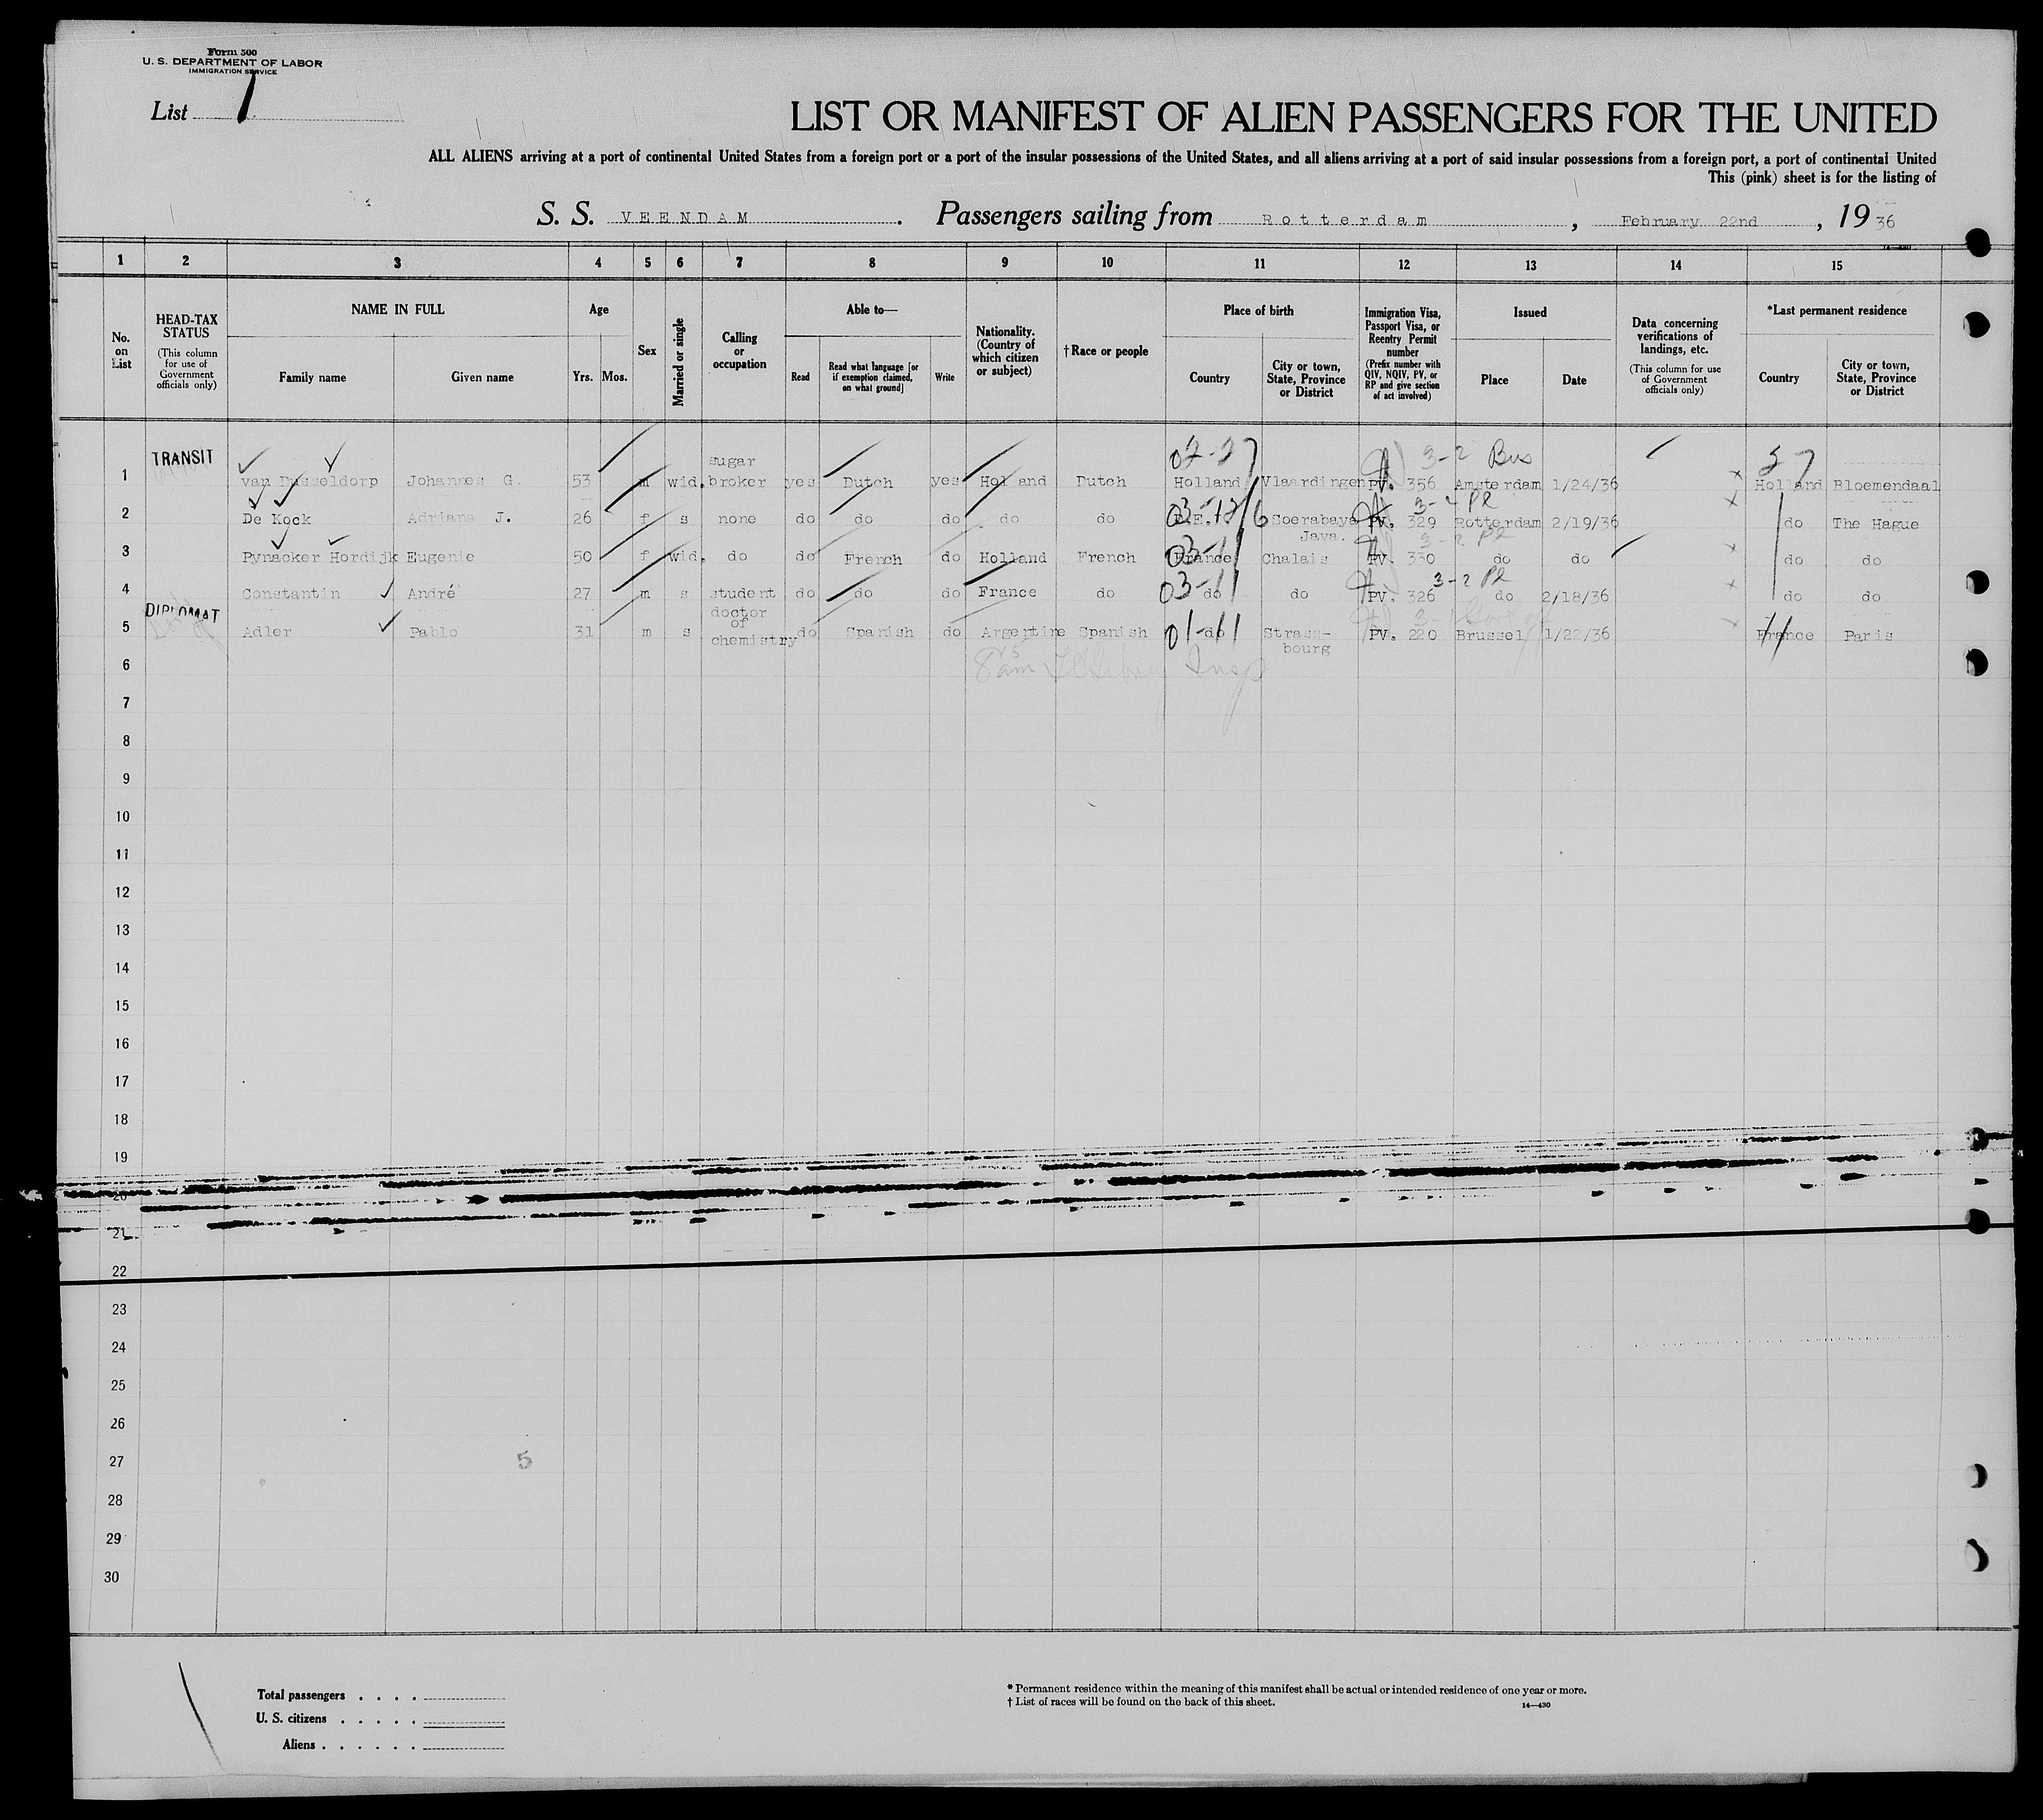 Form 500
U. S. DEPARTMENT OF LABOR
IMMIGRATION SERVICE
List 1
LIST OR MANIFEST OF ALIEN PASSENGERS FOR THE UNITED
ALL ALIENS arriving at a port of continental United States from a foreign port or a port of the insular possessions of the United States, and all aliens arriving at a port of said insular possessions from a foreign port, a port of continental United
This (pink) sheet is for the listing of
S. S. VEENDAM . Passengers sailing from Rotterdam , February 22nd , 19 36
14—430
1 2 3 4 5 6 7 8 9 10 11 12 13 14 15
No. on List
HEAD-TAX STATUS (This column for use of Government officials only)
NAME IN FULL
Family name Given name
Age
Yrs. Mos.
Sex
Married or single
Calling or occupation
Able to—
Read
Read what language [or if exemption claimed, on what ground]
Write
Nationality. (Country of which citizen or subject)
†Race or people
Place of birth
Country
City or town, State, Province or District
Immigration Visa, Passport Visa, or Reentry Permit number (Prefix number with QIV, NQIV, PV, or RP and give section of act involved)
Issued
Place Date
Data concerning verifications of landings, etc. (This column for use of Government officials only)
*Last permanent residence
Country
City or town, State, Province or District
TRANSIT 02-27 3-2 Bus 27
1 van Dusseldorp Johannes G. 53 m wid. sugar broker yes Dutch yes Holland Dutch Holland Vlaardingen PV. 356 Amsterdam 1/24/36 Holland Bloemendaal
3-2 PR
2 De Kock Adriana J. 26 f s none do do do do do Soerabaya Java. PV. 329 Rotterdam 2/19/36 do The Hague
03-11 3-2 PR
3 Pynacker Hordijk Eugenie 50 f wid. do do French do Holland French France Chalais PV. 330 do do do do
03-11 3-2 PR
4 Constantin André 27 m s student do do do France do do do PV. 326 do 2/18/36 do do
DIPLOMAT
01-11
5 Adler Pablo 31 m s doctor of chemistry do Spanish do Argentine Spanish do Strassbourg PV. 220 Brussel 1/22/36 France Paris
6
7
8
9
10
11
12
13
14
15
16
17
18
19
20
21
22
23
24
25
26
27
5
28
29
30
Total passengers . . . .
U. S. citizens . . . . .
Aliens . . . . . .
* Permanent residence within the meaning of this manifest shall be actual or intended residence of one year or more.
† List of races will be found on the back of this sheet.
14—430